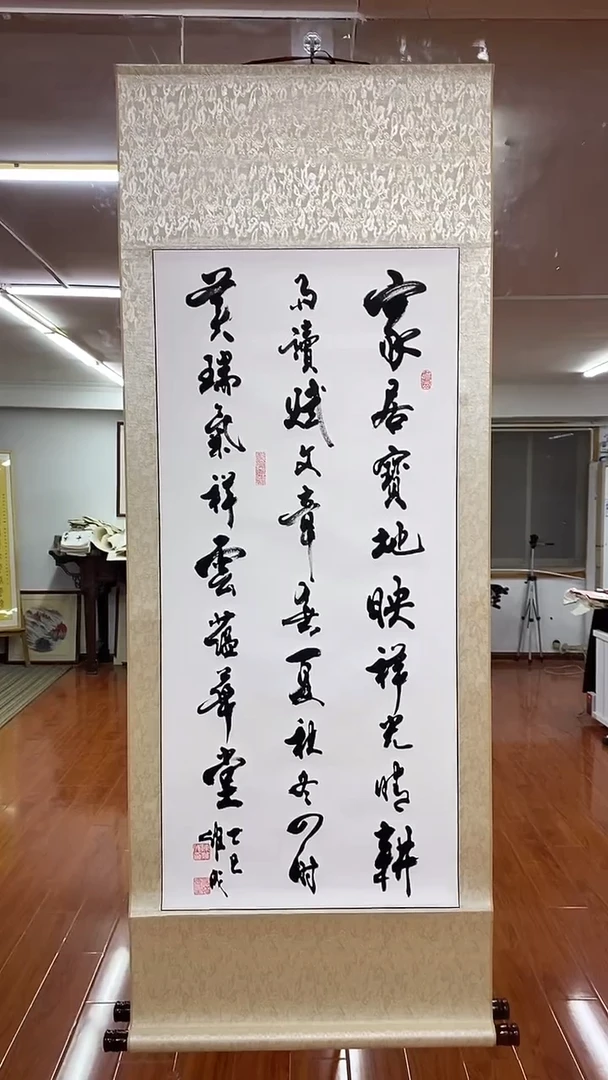 家居寶地映祥光晴耕
雨讀賦文章春夏秋冬四时
美瑞氣祥雲蘊華堂
乙巳